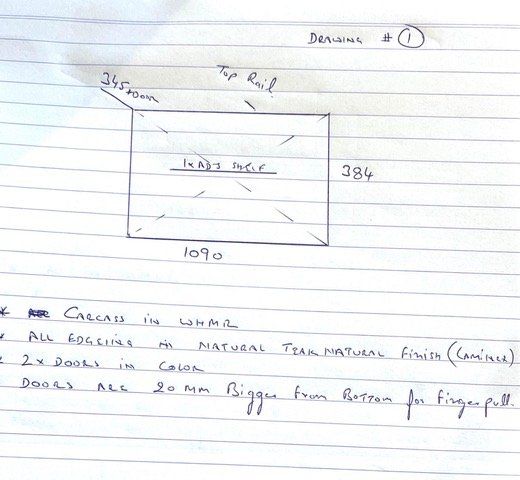 DRAWING # 1
Top Rail
345+Door
1x ADJ SHELF
384
1090
* CARCASS IN WHMR
* ALL EDGEING IN NATURAL TEAK NATURAL FINISH (LAMINEX)
* 2x DOORS IN COLOR
DOORS ARE 20 MM Bigger from BOTTOM for Fingerpull.